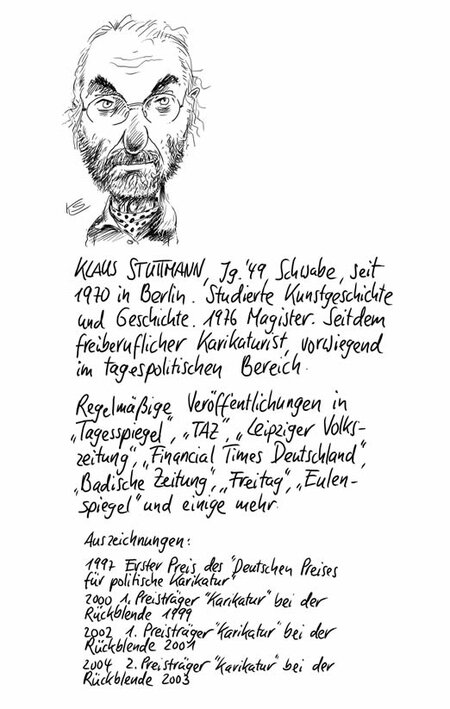 KS
KLAUS STUTTMANN, Jg. '49, Schwabe, seit
1970 in Berlin. Studierte Kunstgeschichte
und Geschichte. 1976 Magister. Seitdem
freiberuflicher Karikaturist, vorwiegend
im tagespolitischen Bereich.
Regelmäßige Veröffentlichungen in
„Tagesspiegel", „TAZ", „Leipziger Volks-
zeitung", „Financial Times Deutschland",
„Badische Zeitung", „Freitag", „Eulen-
spiegel" und einige mehr.
Auszeichnungen:
1997 Erster Preis des "Deutschen Preises
für politische Karikatur"
2000 1. Preisträger "Karikatur" bei der
Rückblende 1999
2002 1. Preisträger "Karikatur" bei der
Rückblende 2001
2004 2. Preisträger "Karikatur" bei der
Rückblende 2003